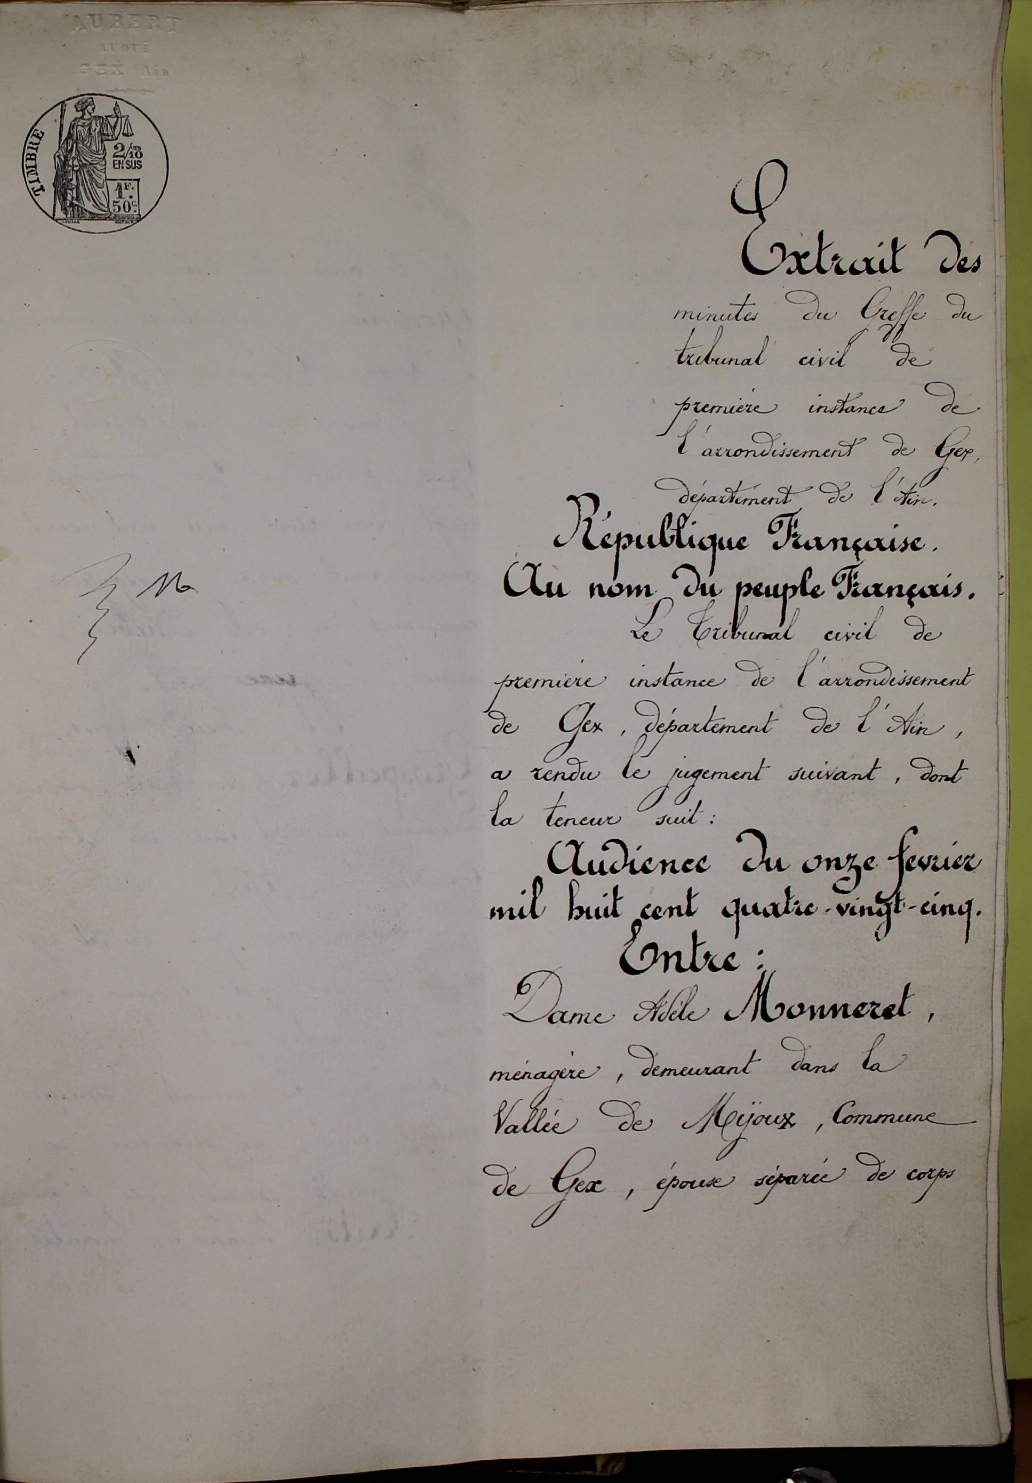 AUBERT
GEX Ain
TIMBRE
2/10
EN SUS
1F.
50c.
Extrait des
minutes du Greffe du
tribunal civil de
première instance de
l'arrondissement de Gex,
département de l'Ain.
République Française.
Au nom du peuple Français.
Le Tribunal civil de
première instance de l'arrondissement
de Gex, département de l'Ain,
a rendu le jugement suivant, dont
la teneur suit :
Audience du onze fevrier
mil huit cent quatre-vingt-cinq.
Entre :
Dame Adèle Monneret,
ménagère, demeurant dans la
Vallée de Mijoux, Commune
de Gex, épouse séparée de corps